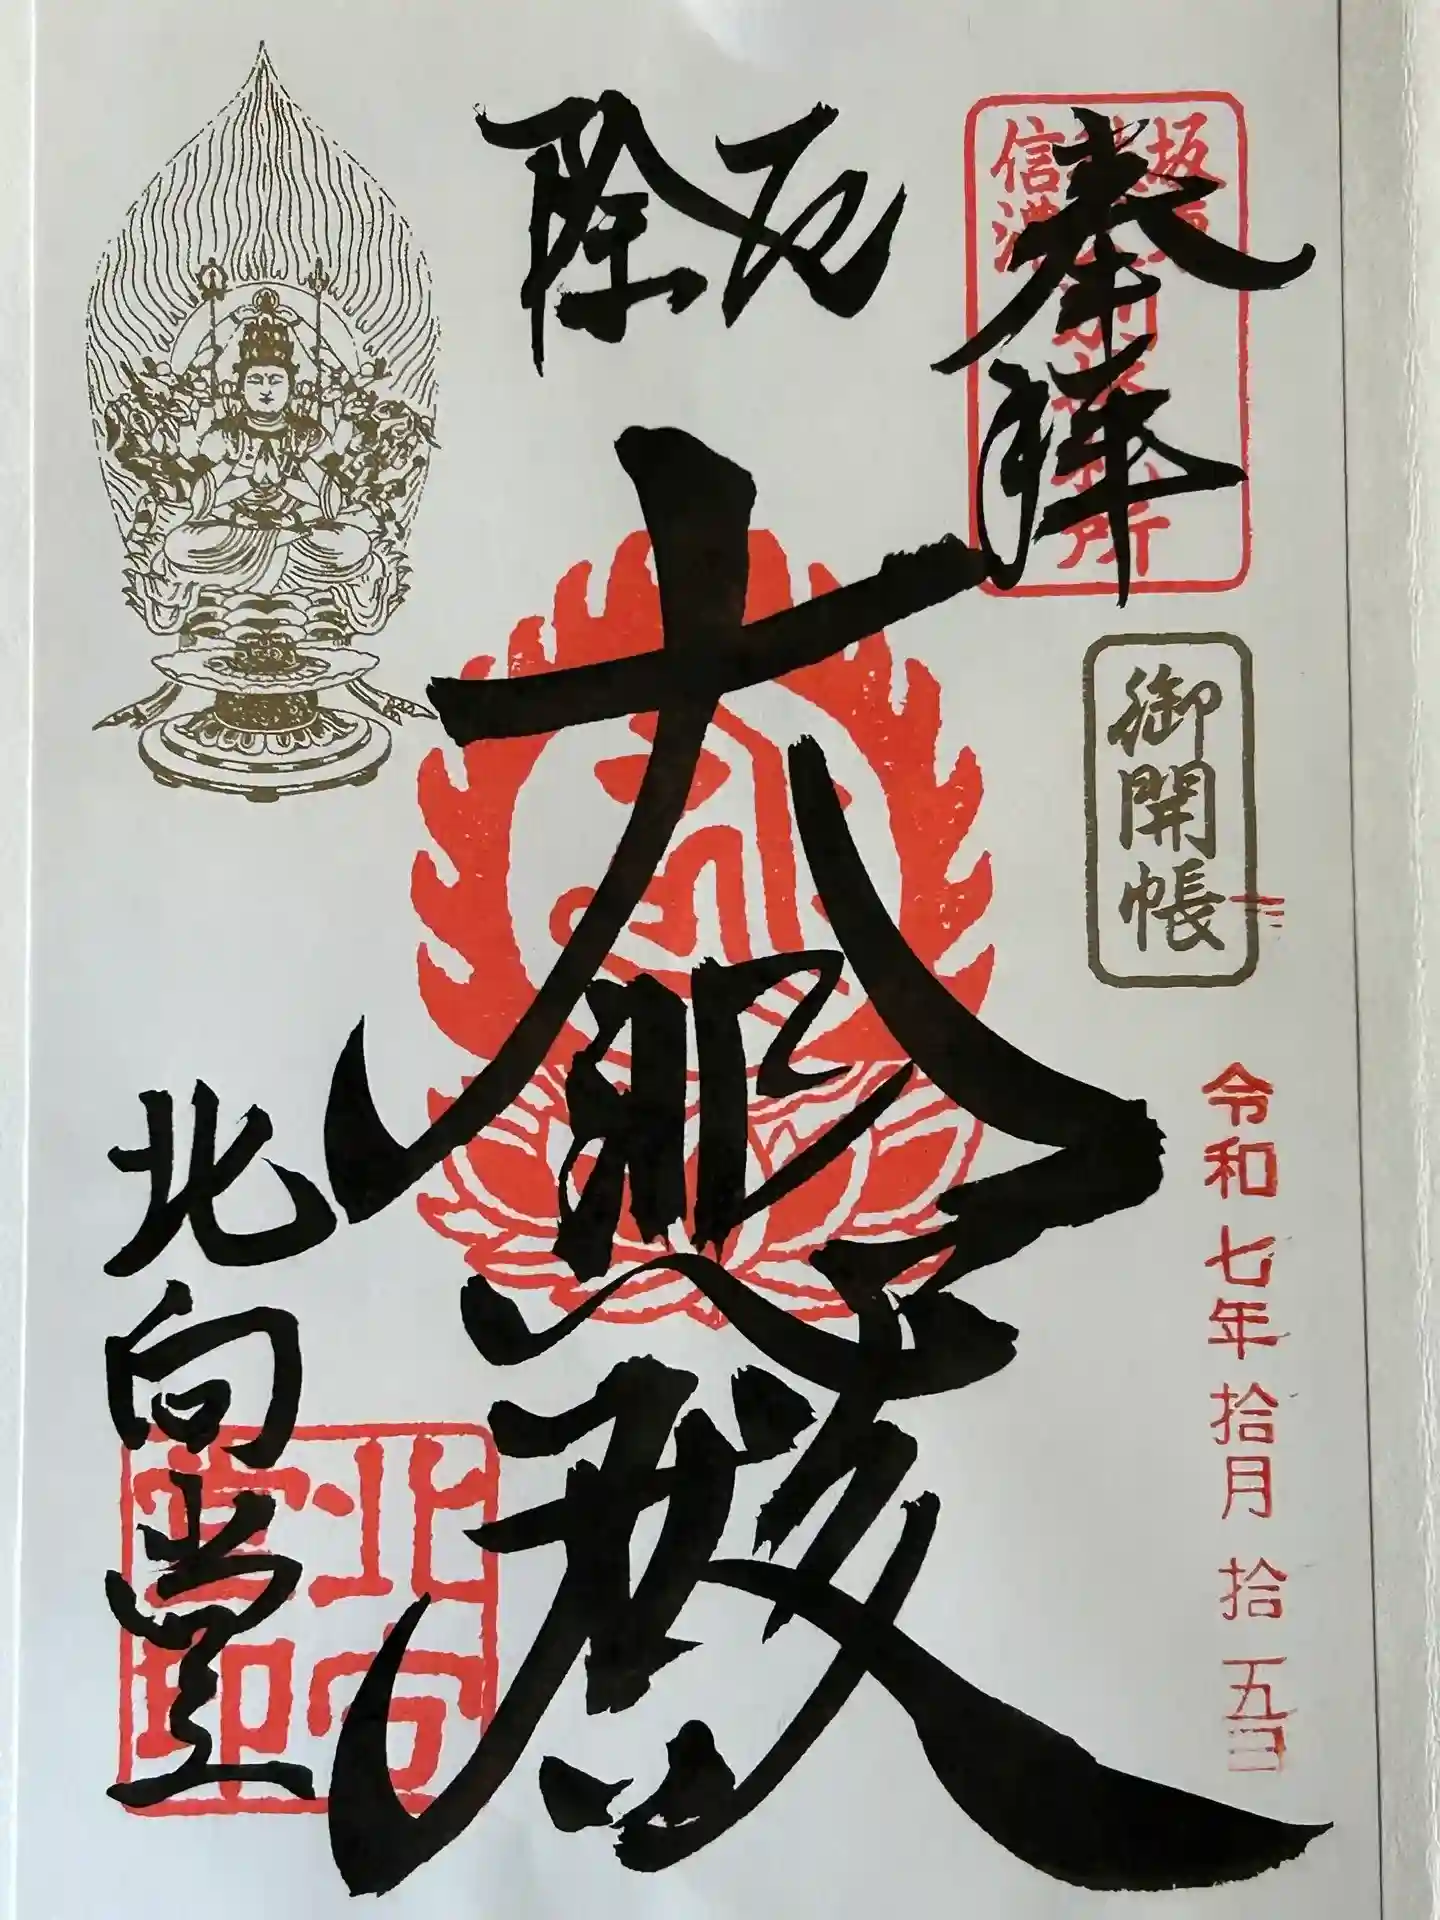 奉拝
坂東
秩父
信濃
御開帳
令和七年拾月拾五日
厄除
大悲殿
北向堂
北向
堂印